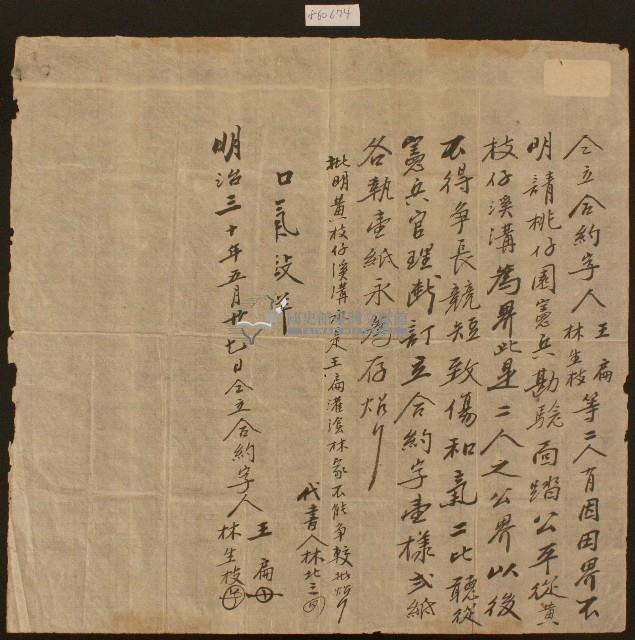 仝立合約字人王扁林生枝等二人有因田界不
明請桃仔園憲兵勘驗面踏公平從黃
枝仔溪溝為界此是二人之公界以後
不得争長競短致傷和氣二比聽從
憲兵官理斷訂立合約字壹樣弍紙
各執壹紙永為存炤
批明黃枝仔溪溝水定王扁灌溉林家不能争較批炤
代書人林北三
口氣没羊
明治三十年五月廿七日仝立合約字人王扁
林生枝
460674
國史館臺灣文獻館